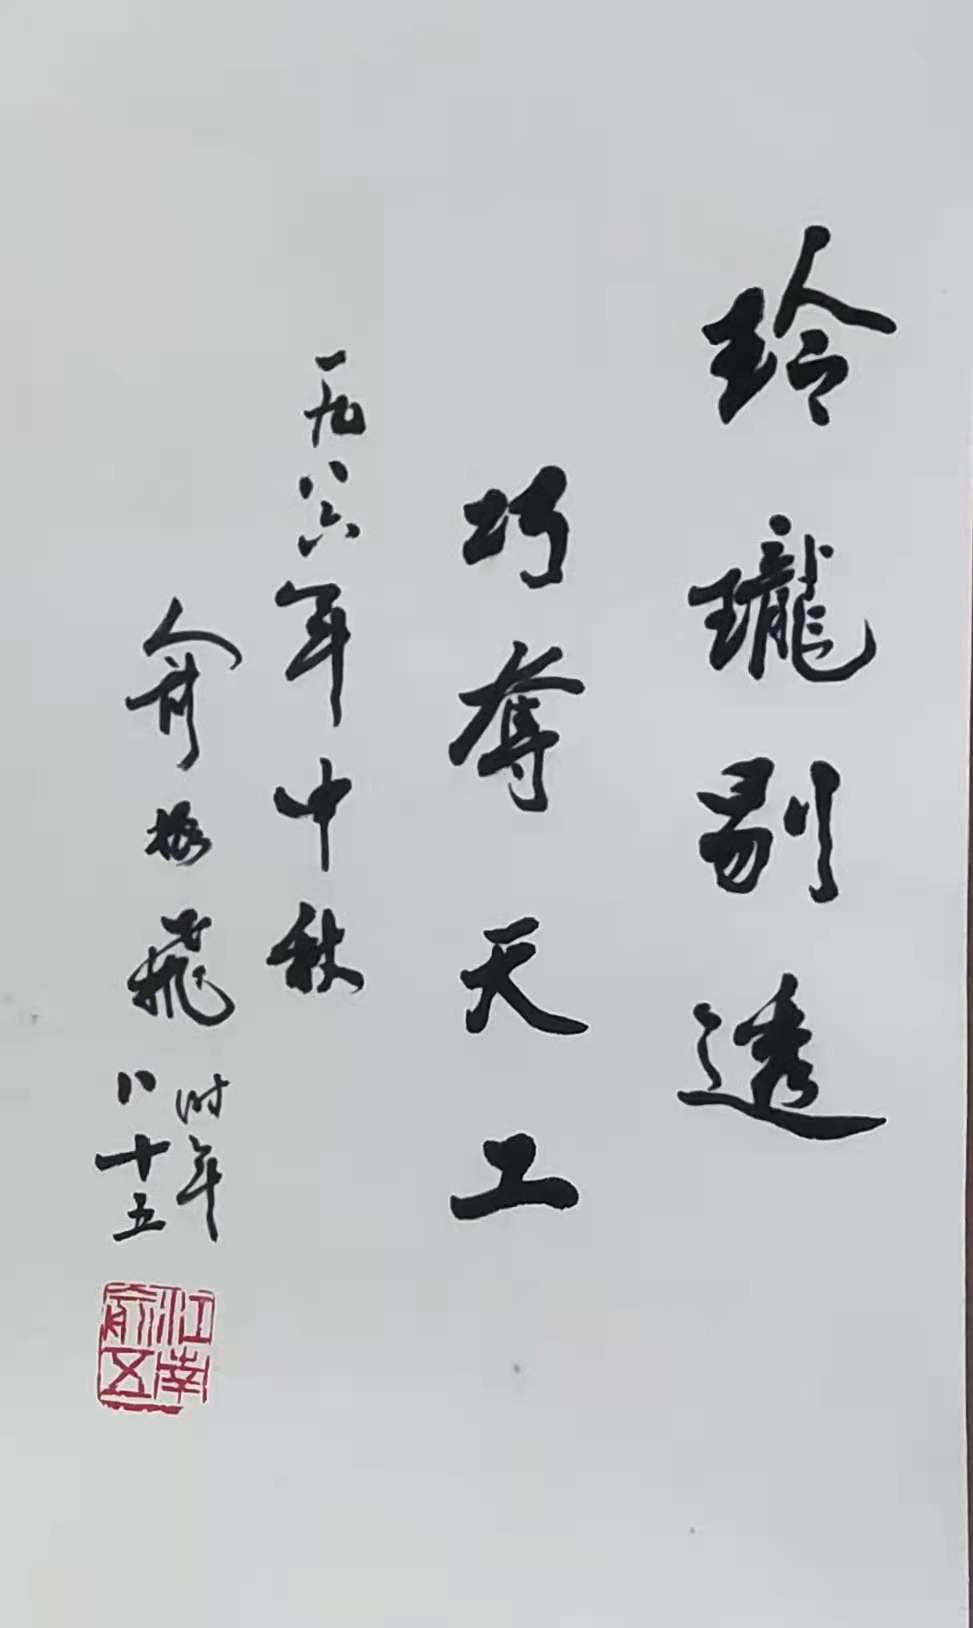 玲瓏剔透
巧奪天工
一九八六年中秋
俞振飛
时年
八十五
江南
俞五